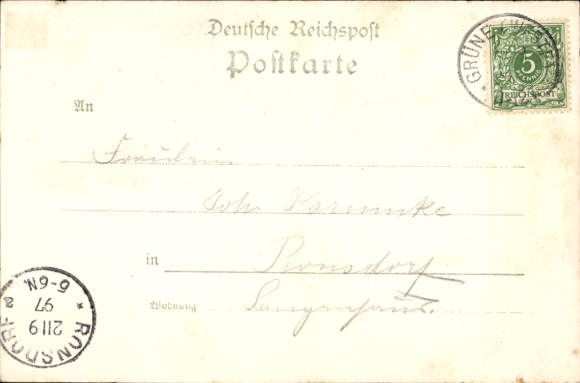 Deutsche Reichspost
Postkarte
GRÜNE (WESTF.)
5
PFENNIG
REICHSPOST
An
Fräulein
Joh. Karnunke
in Ronsdorf
Wohnung
RONSDORF
2119
97
6-6N.